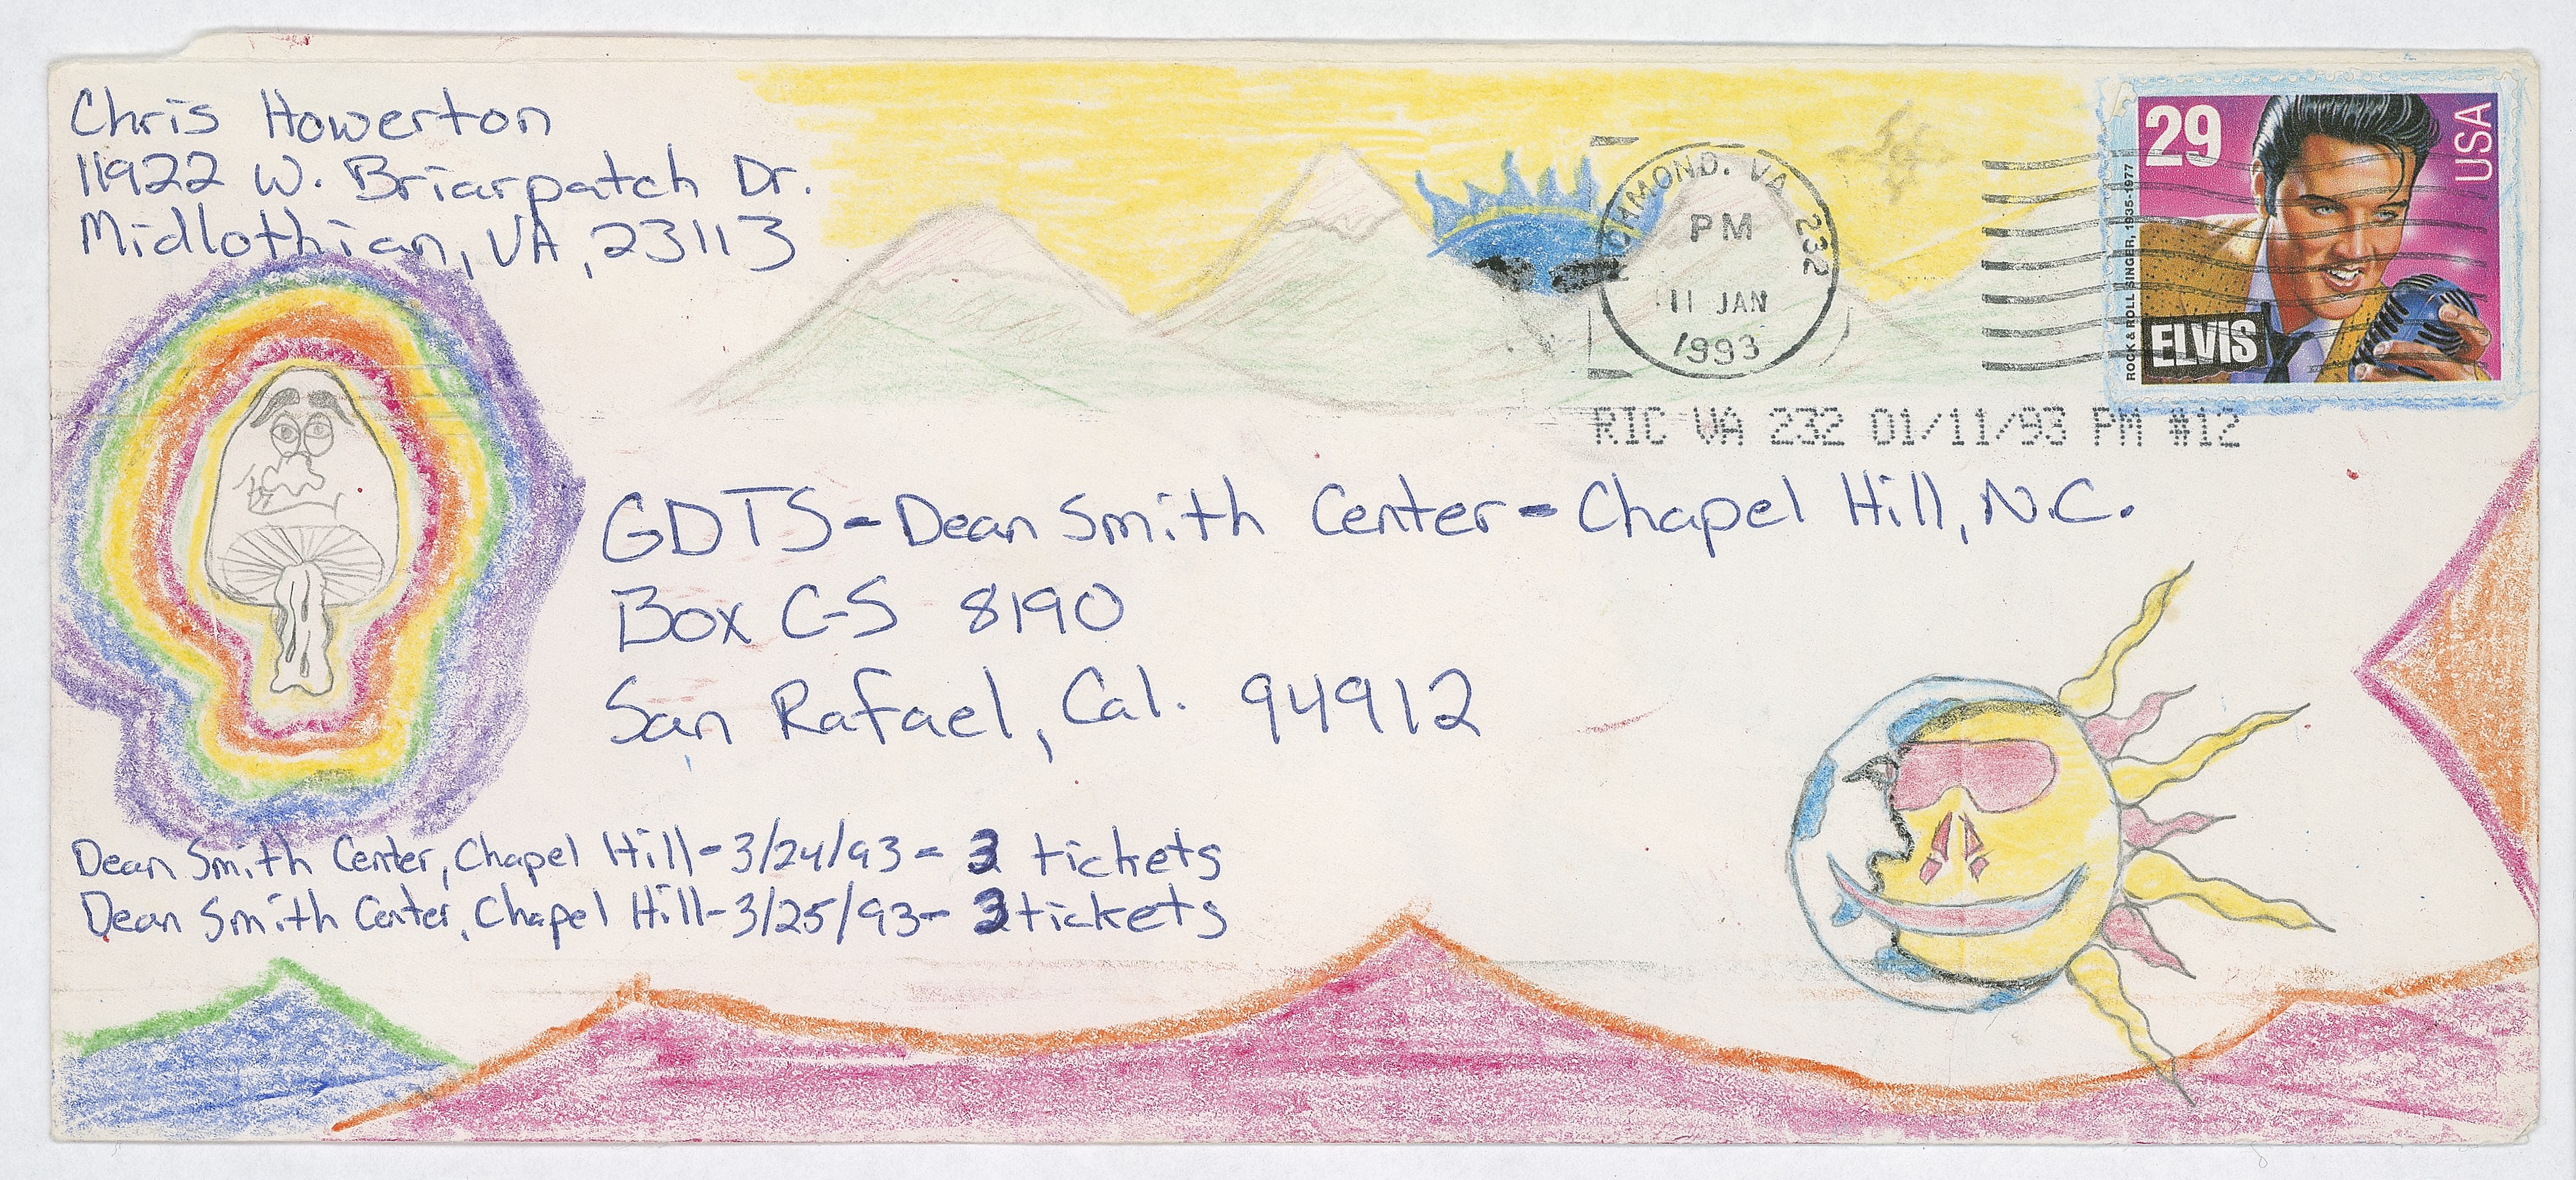 Chris Howerton
11922 W. Briarpatch Dr.
Midlothian, VA, 23113
RICHMOND. VA 232
PM
11 JAN
1993
29
USA
ROCK & ROLL SINGER, 1935-1977
ELVIS
RIC VA 232 01/11/93 PM #12
GDTS-Dean Smith Center-Chapel Hill, N.C.
Box C-S 8190
San Rafael, Cal. 94912
Dean Smith Center, Chapel Hill-3/24/93- 3 tickets
Dean Smith Center, Chapel Hill-3/25/93- 3 tickets